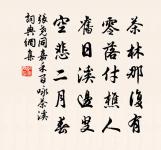 茶林那復有
零落付樵人
舊日溪邊叟
空悲二月春
張堯同嘉禾百咏茶溪
詞典網集